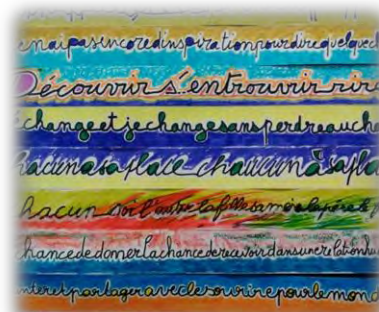 enaipasencored'inspirationpourdirequelquech
Découvrir s'entrouvrir rire
échangeetjechangesansperdreauch
hacunasaplace-chaucunàsapla
hacun soi l'autre lafille samère lepère le
chancededonnerlachancederecevoirdansunerelationhu
nteretpartageraveclesourirepourlemond